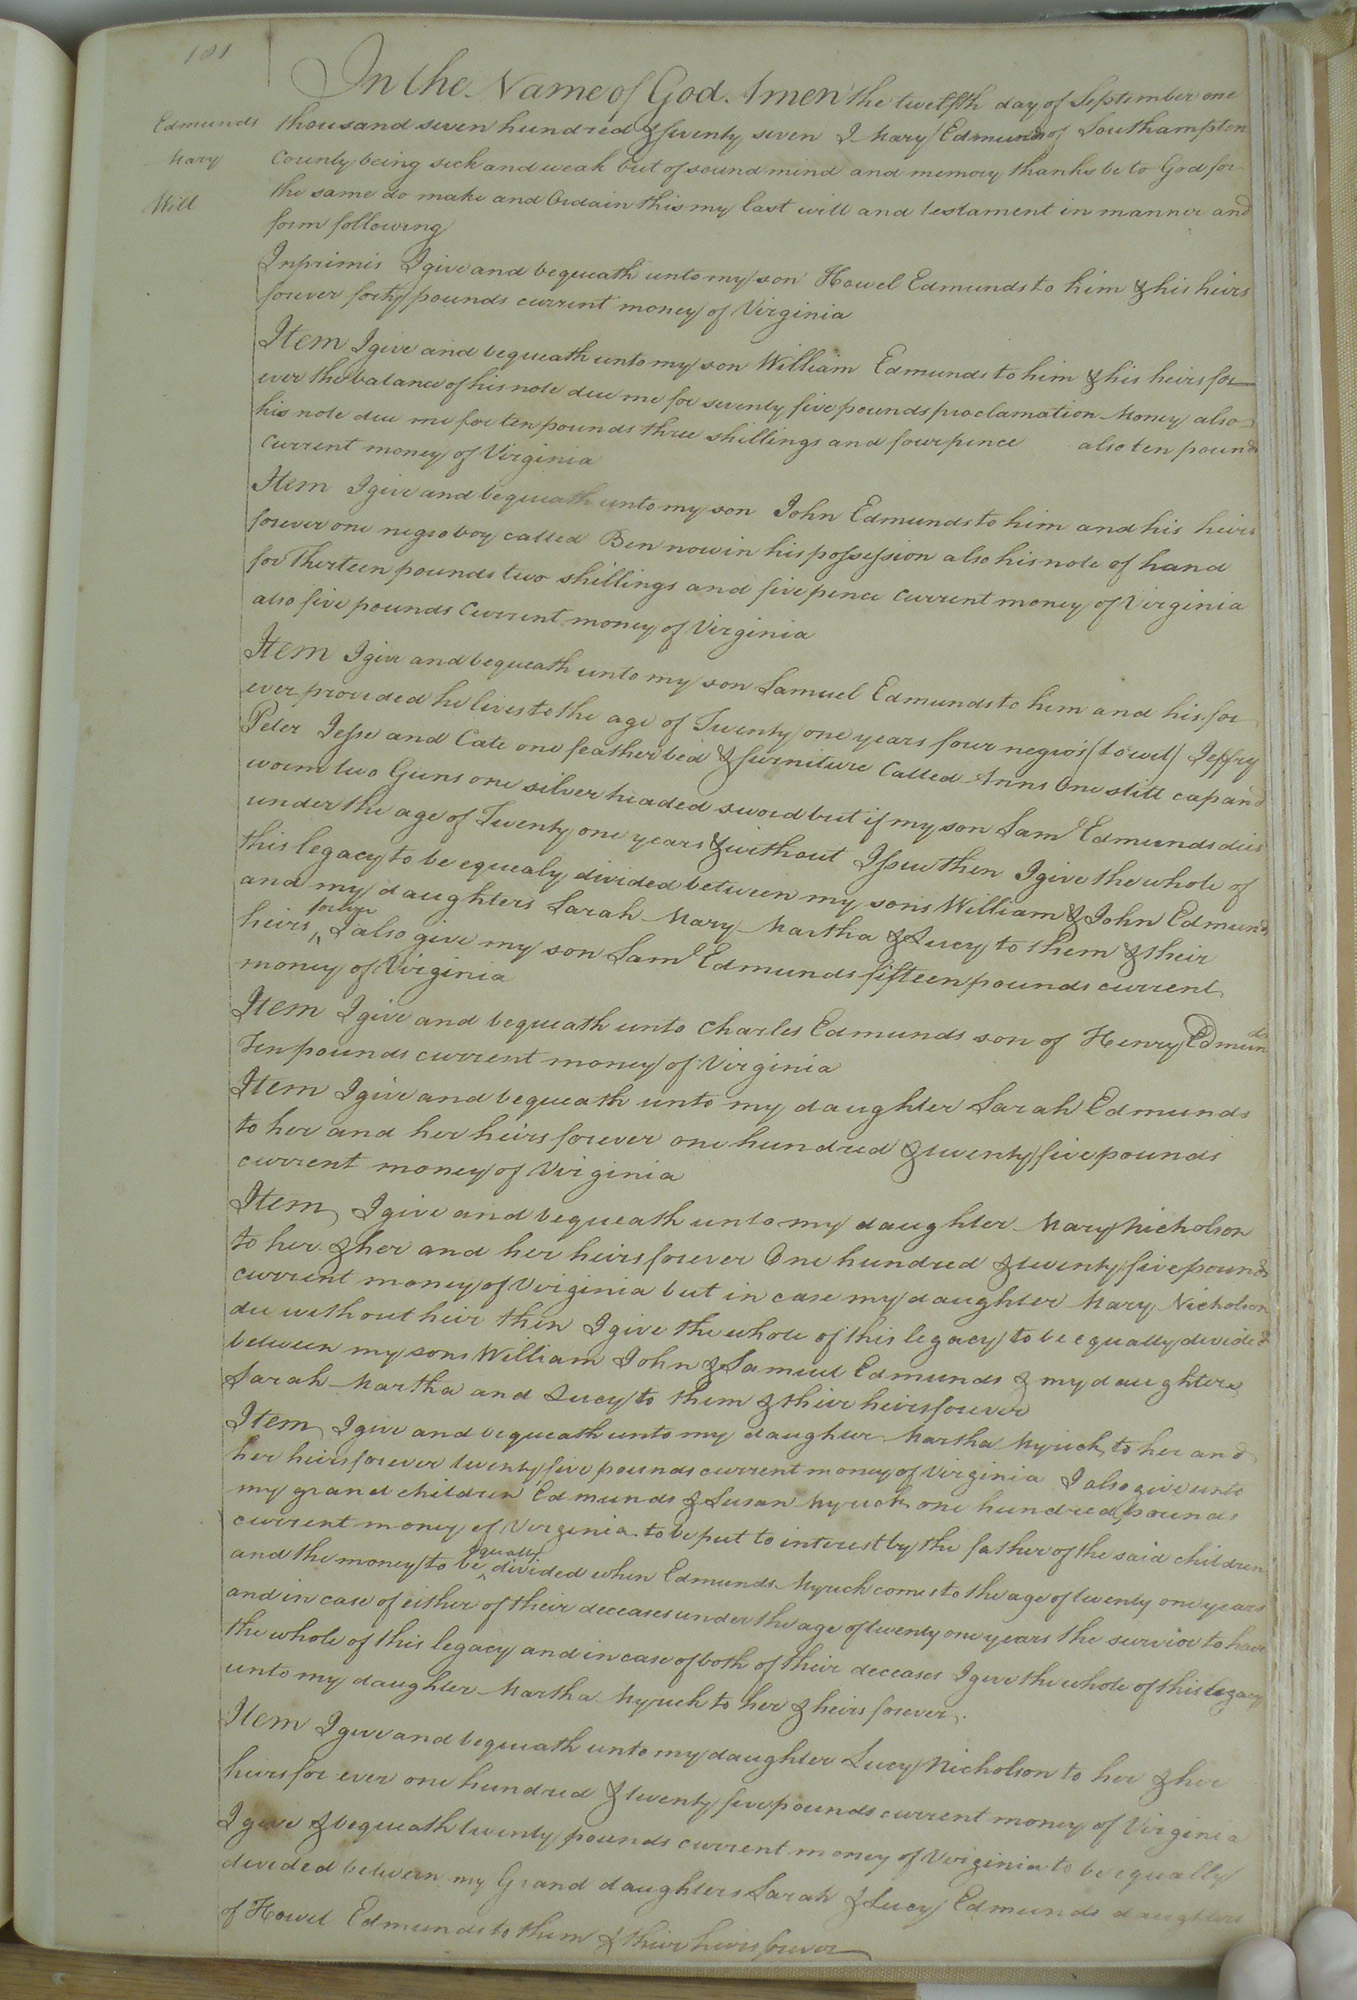 181
In the Name of God. Amen the twelfth day of September one
Edmunds thousand seven hundred & seventy seven I Mary Edmunds of Southampton
Mary County being sick and weak but of sound mind and memory thanks be to God for
Will the same do make and Ordain this my last will and testament in manner and
form following
Inprimis I give and bequeath unto my son Howel Edmunds to him & his heirs
forever forty pounds current money of Virginia
Item I give and bequeath unto my son William Edmunds to him & his heirs for
ever the balance of his note due me for seventy five pounds proclamation Money also
his note due me for ten pounds three shillings and four pence also ten pounds
current money of Virginia
Item I give and bequeath unto my son John Edmunds to him and his heirs
forever one negro boy called Ben now in his possession also his note of hand
for Thirteen pounds two shillings and five pence current money of Virginia
also five pounds Current money of Virginia
Item I give and bequeath unto my son Samuel Edmunds to him and his for
ever provided he lives to the age of Twenty one years four negro's (to wit) Jeffry
Peter Jesse and Cate one feather bed & furniture Called Anns One still cap and
worm two Guns one silver headed sword but if my son Saml Edmunds dies
under the age of Twenty one years & without Issue then I give the whole of
this legacy to be equaly divided between my sons William & John Edmunds
and my daughters Sarah Mary Martha & Lucy to them & their
heirs forever I also give my son Saml Edmunds fifteen pounds current
money of Virginia
Item I give and bequeath unto Charles Edmunds son of Henry Edmunds
Ten pounds current money of Virginia
Item I give and bequeath unto my daughter Sarah Edmunds
to her and her heirs forever one hundred & twenty five pounds
current money of Virginia
Item I give and bequeath unto my daughter Mary Nicholson
to her & her and her heirs forever One hundred & twenty five pounds
current money of Virginia but in case my daughter Mary Nicholson
die without heir then I give the whole of this legacy to be equally divided
between my sons William John & Samuel Edmunds & my daughters
Sarah Martha and Lucy to them & their heirs forever
Item I give and bequeath unto my daughter Martha Myrick to her and
her heirs forever twenty five pounds current money of Virginia I also give unto
my grand children Edmunds & Susan Myrick one hundred pounds
current money of Virginia to be put to interest by the father of the said children
and the money to be equally divided when Edmunds Myrick comes to the age of twenty one years
and in case of either of their deceases under the age of twenty one years the survivor to have
the whole of this legacy and in case of both of their deceases I give the whole of this legacy
unto my daughter Martha Myrick to her & heirs forever.
Item I give and bequeath unto my daughter Lucy Nicholson to her & her
heirs for ever one hundred & twenty five pounds current money of Virginia
I give & bequeath twenty pounds current money of Virginia to be equally
divided between my Grand daughters Sarah & Lucy Edmunds daughters
of Howel Edmunds to them & their heirs forever